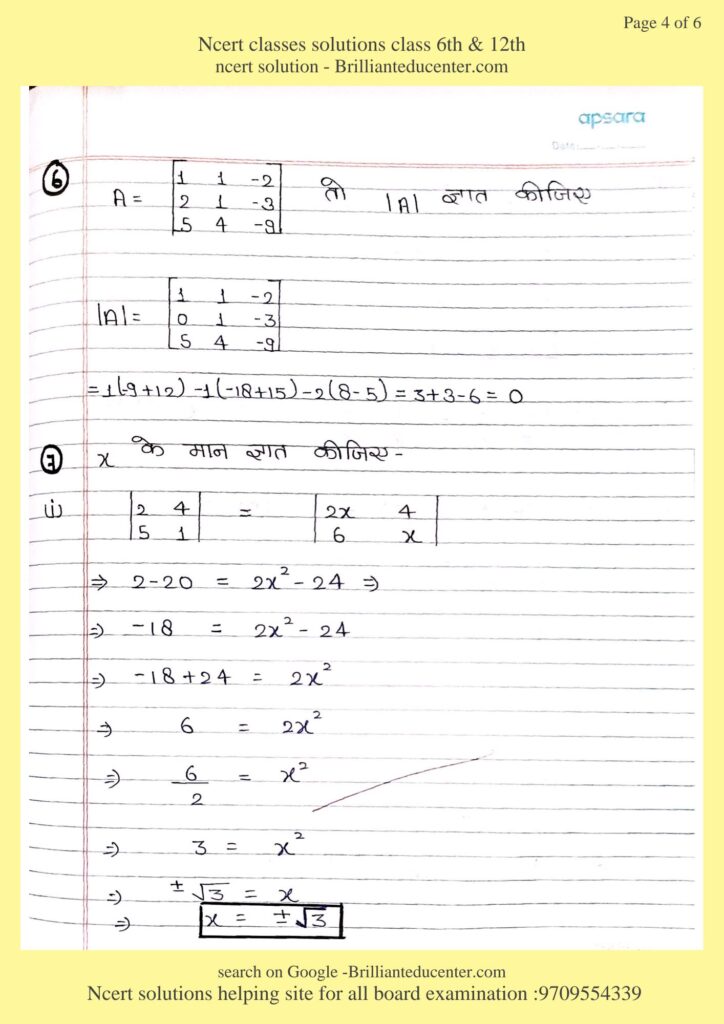 Page 4 of 6
Ncert classes solutions class 6th & 12th
ncert solution - Brillianteducenter.com
apsara
Date:
6
A = [1 1 -2
2 1 -3
5 4 -9] तो |A| ज्ञात कीजिए
|A| = [1 1 -2
0 1 -3
5 4 -9]
= 1(-9+12) -1(-18+15) -2(8-5) = 3+3-6 = 0
7 x के मान ज्ञात कीजिए -
(i) |2 4
5 1| = |2x 4
6 x|
⇒ 2-20 = 2x² - 24 ⇒
⇒ -18 = 2x² - 24
⇒ -18+24 = 2x²
⇒ 6 = 2x²
⇒ 6/2 = x²
⇒ 3 = x²
⇒ ±√3 = x
⇒ x = ±√3
search on Google -Brillianteducenter.com
Ncert solutions helping site for all board examination :9709554339